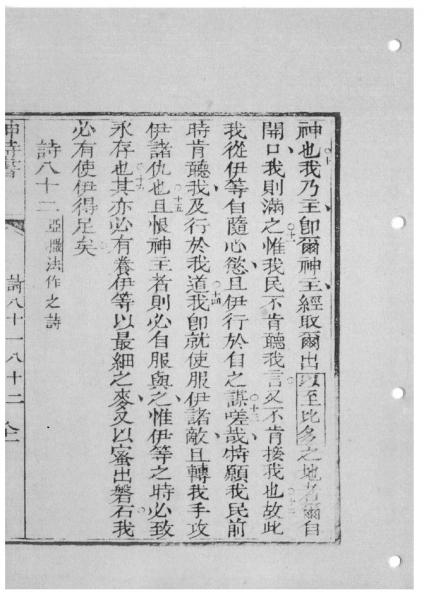 神也我乃主卽爾神主經取爾出以至比多之地者爾自
開口我則滿之惟我民不肯聽我言又不肯接我也故此
我從伊等自隨心慾且伊行於自之謀嗟哉特願我民前
時肯聽我及行於我道我卽就使服伊諸敵且轉我手攻
伊諸仇也且恨神主者則必自服與之惟伊等之時必致
永存也其亦必有養伊等以最細之麥又以蜜出磐石我
必有使伊得足矣
詩八十二 亞撒法作之詩
神詩書 詩八十一 八十二